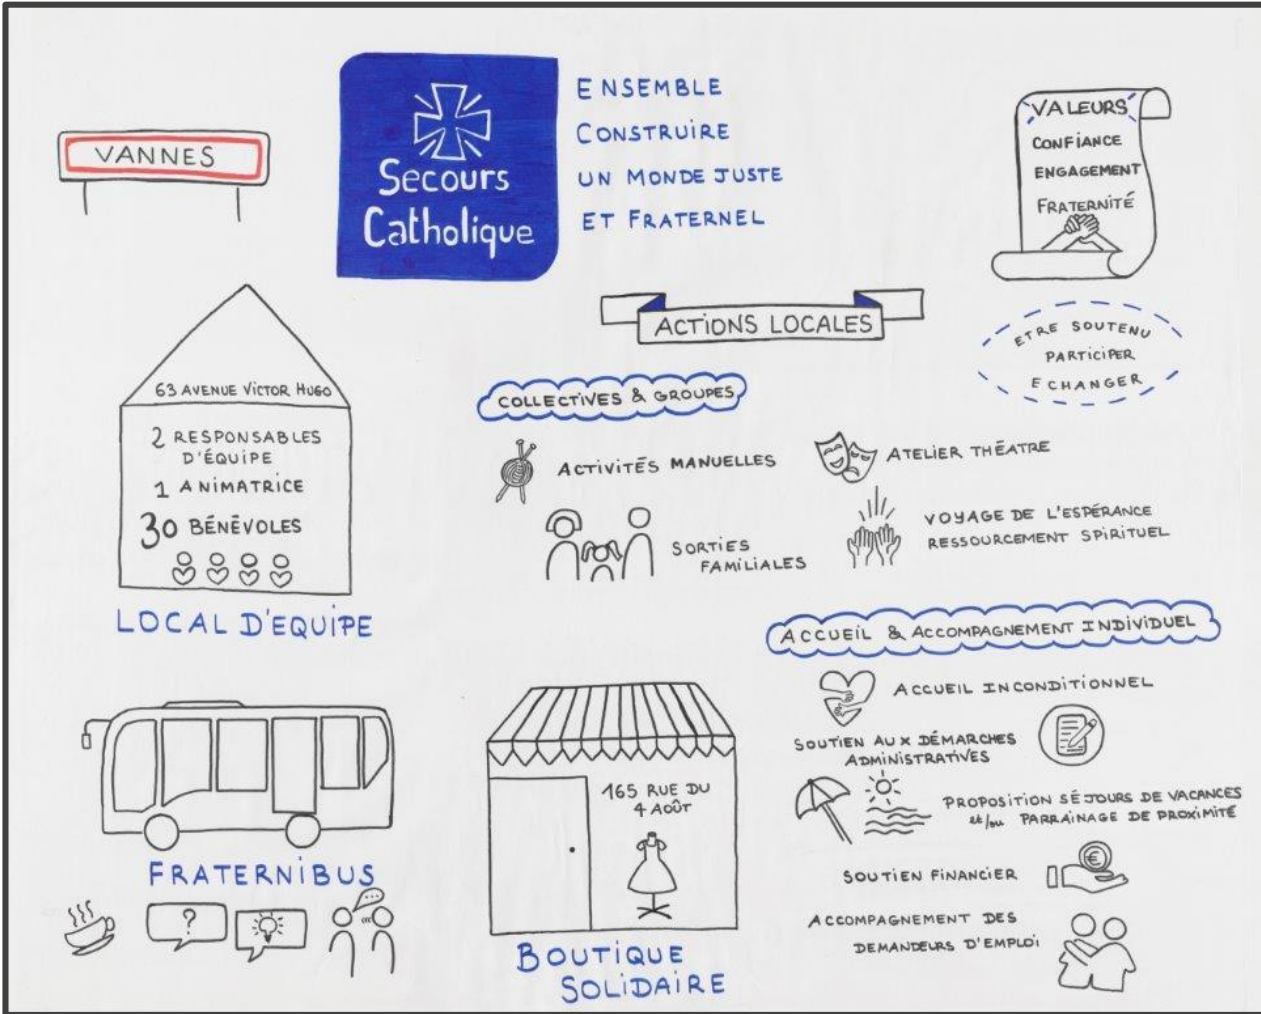 VANNES
Secours
Catholique
ENSEMBLE
CONSTRUIRE
UN MONDE JUSTE
ET FRATERNEL
VALEURS
CONFIANCE
ENGAGEMENT
FRATERNITÉ
ETRE SOUTENU
PARTICIPER
ECHANGER
63 AVENUE VICTOR HUGO
2 RESPONSABLES
D'ÉQUIPE
1 ANIMATRICE
30 BÉNÉVOLES
LOCAL D'EQUIPE
ACTIONS LOCALES
COLLECTIVES & GROUPES
ACTIVITÉS MANUELLES
ATELIER THÉATRE
SORTIES
FAMILIALES
VOYAGE DE L'ESPÉRANCE
RESSOURCEMENT SPIRITUEL
ACCUEIL & ACCOMPAGNEMENT INDIVIDUEL
ACCUEIL INCONDITIONNEL
SOUTIEN AUX DÉMARCHES
ADMINISTRATIVES
PROPOSITION SÉJOURS DE VACANCES
et/ou PARRAINAGE DE PROXIMITÉ
SOUTIEN FINANCIER
€
ACCOMPAGNEMENT DES
DEMANDEURS D'EMPLOI
FRATERNIBUS
?
165 RUE DU
4 AOÛT
BOUTIQUE
SOLIDAIRE